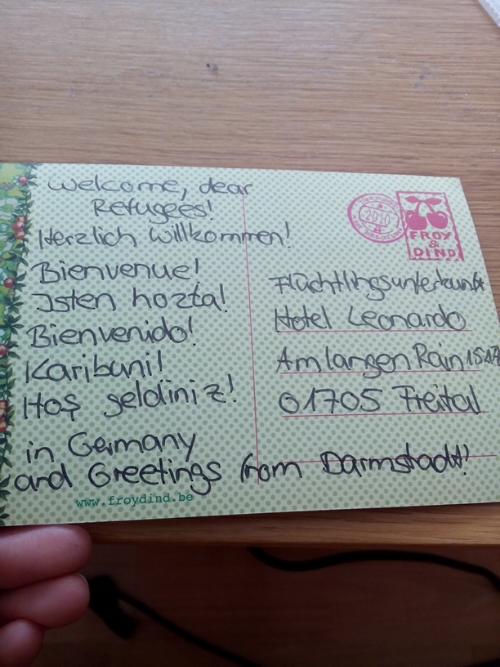 Welcome, dear
Refugees!
Herzlich Willkommen!
Bienvenue!
Isten hozta!
Bienvenido!
Karibuni!
Hoş geldiniz!
in Germany
and Greetings from Darmstadt!
www.froydind.be
2010
FROY
&
DIND
Flüchtlingsunterkunft
Hotel Leonardo
Am langen Rain
01705 Freital